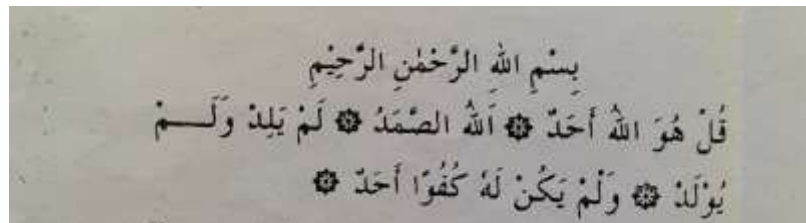 بِسْمِ اللهِ الرَّحْمٰنِ الرَّحِيْمِ
قُلْ هُوَ اللهُ أَحَدٌ ۞ اَللهُ الصَّمَدُ ۞ لَمْ يَلِدْ وَلَـــمْ
يُوْلَدْ ۞ وَلَمْ يَكُنْ لَهُ كُفُوًا أَحَدٌ ۞